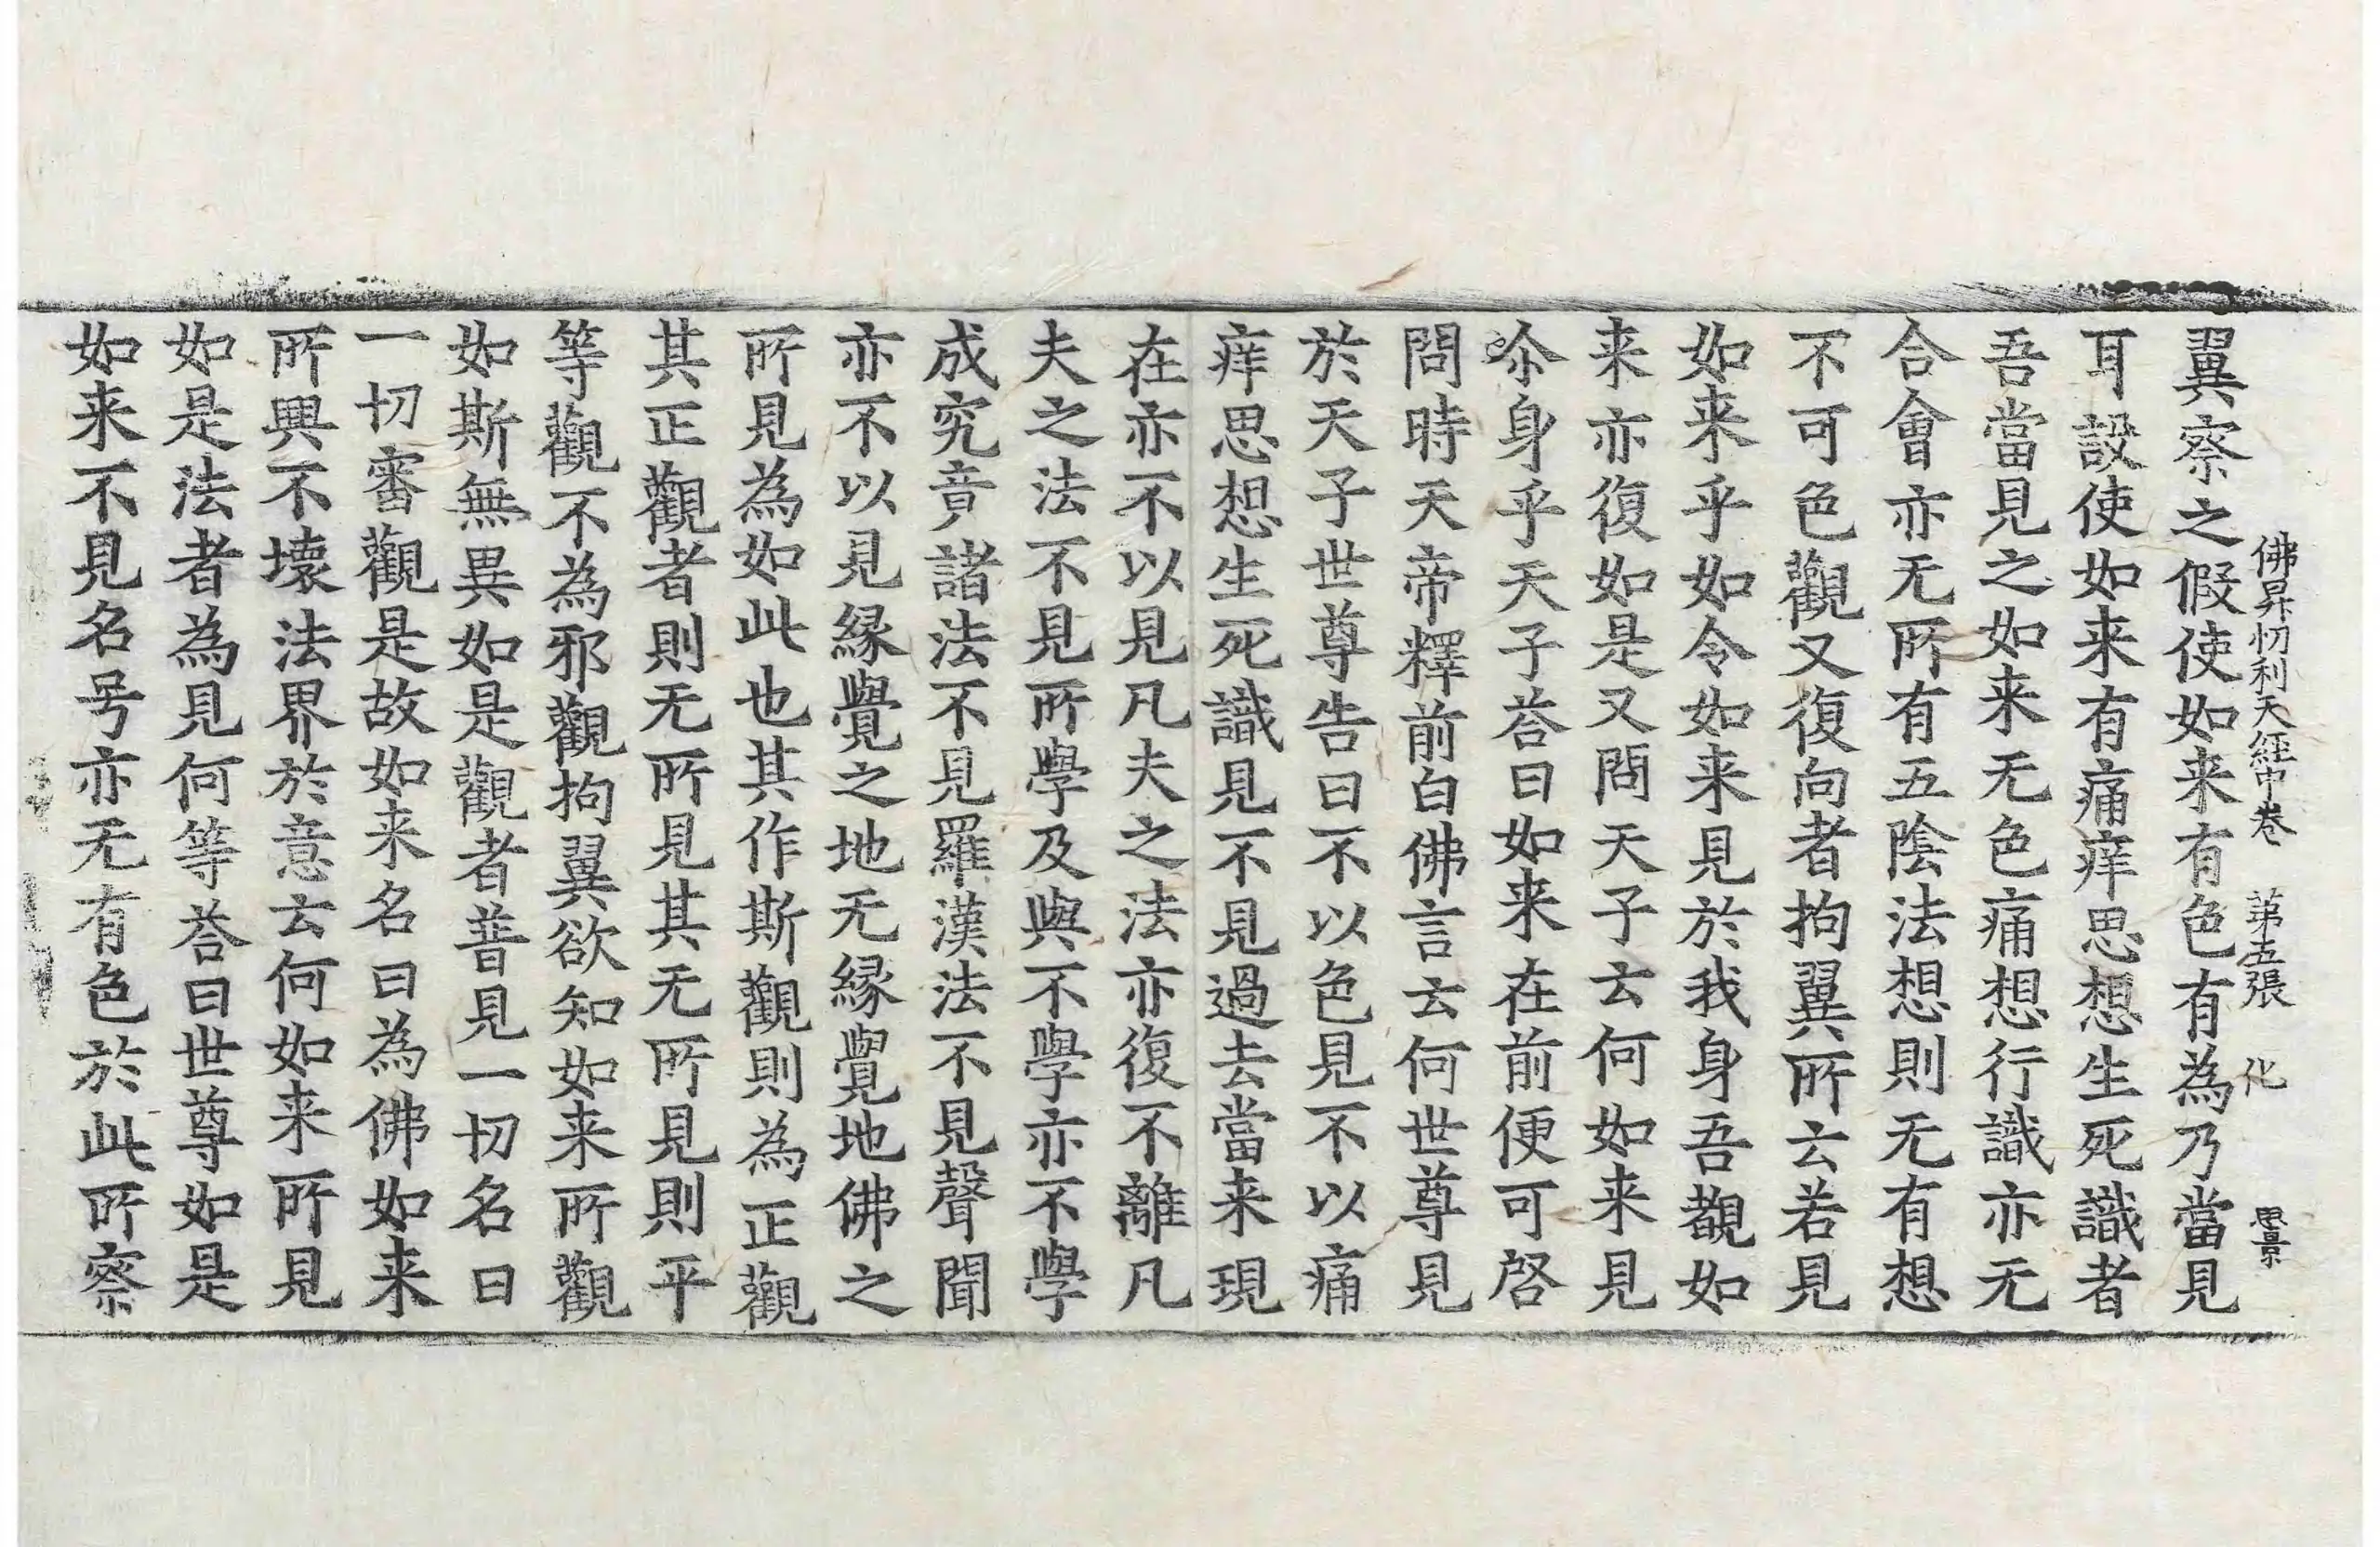 佛昇忉利天經中卷 第五張 化 思景
翼察之假使如来有色有為乃當見
耳設使如来有痛痒思想生死識者
吾當見之如来无色痛想行識亦无
合會亦无所有五陰法想則无有想
不可色觀又復向者拘翼所云若見
如来乎如令如来見於我身吾覩如
来亦復如是又問天子云何如来見
尒身乎天子荅曰如来在前便可啓
問時天帝釋前白佛言云何世尊見
於天子世尊告曰不以色見不以痛
痒思想生死識見不見過去當来現
在亦不以見凡夫之法亦復不離凡
夫之法不見所學及與不學亦不學
成究竟諸法不見羅漢法不見聲聞
亦不以見縁覺之地无縁覺地佛之
所見為如此也其作斯觀則為正觀
其正觀者則无所見其无所見則平
等觀不為邪觀拘翼欲知如来所觀
如斯無異如是觀者普見一切名曰
一切審觀是故如来名曰為佛如来
所興不壞法界於意云何如来所見
如是法者為見何等荅曰世尊如是
如来不見名号亦无有色於此所察